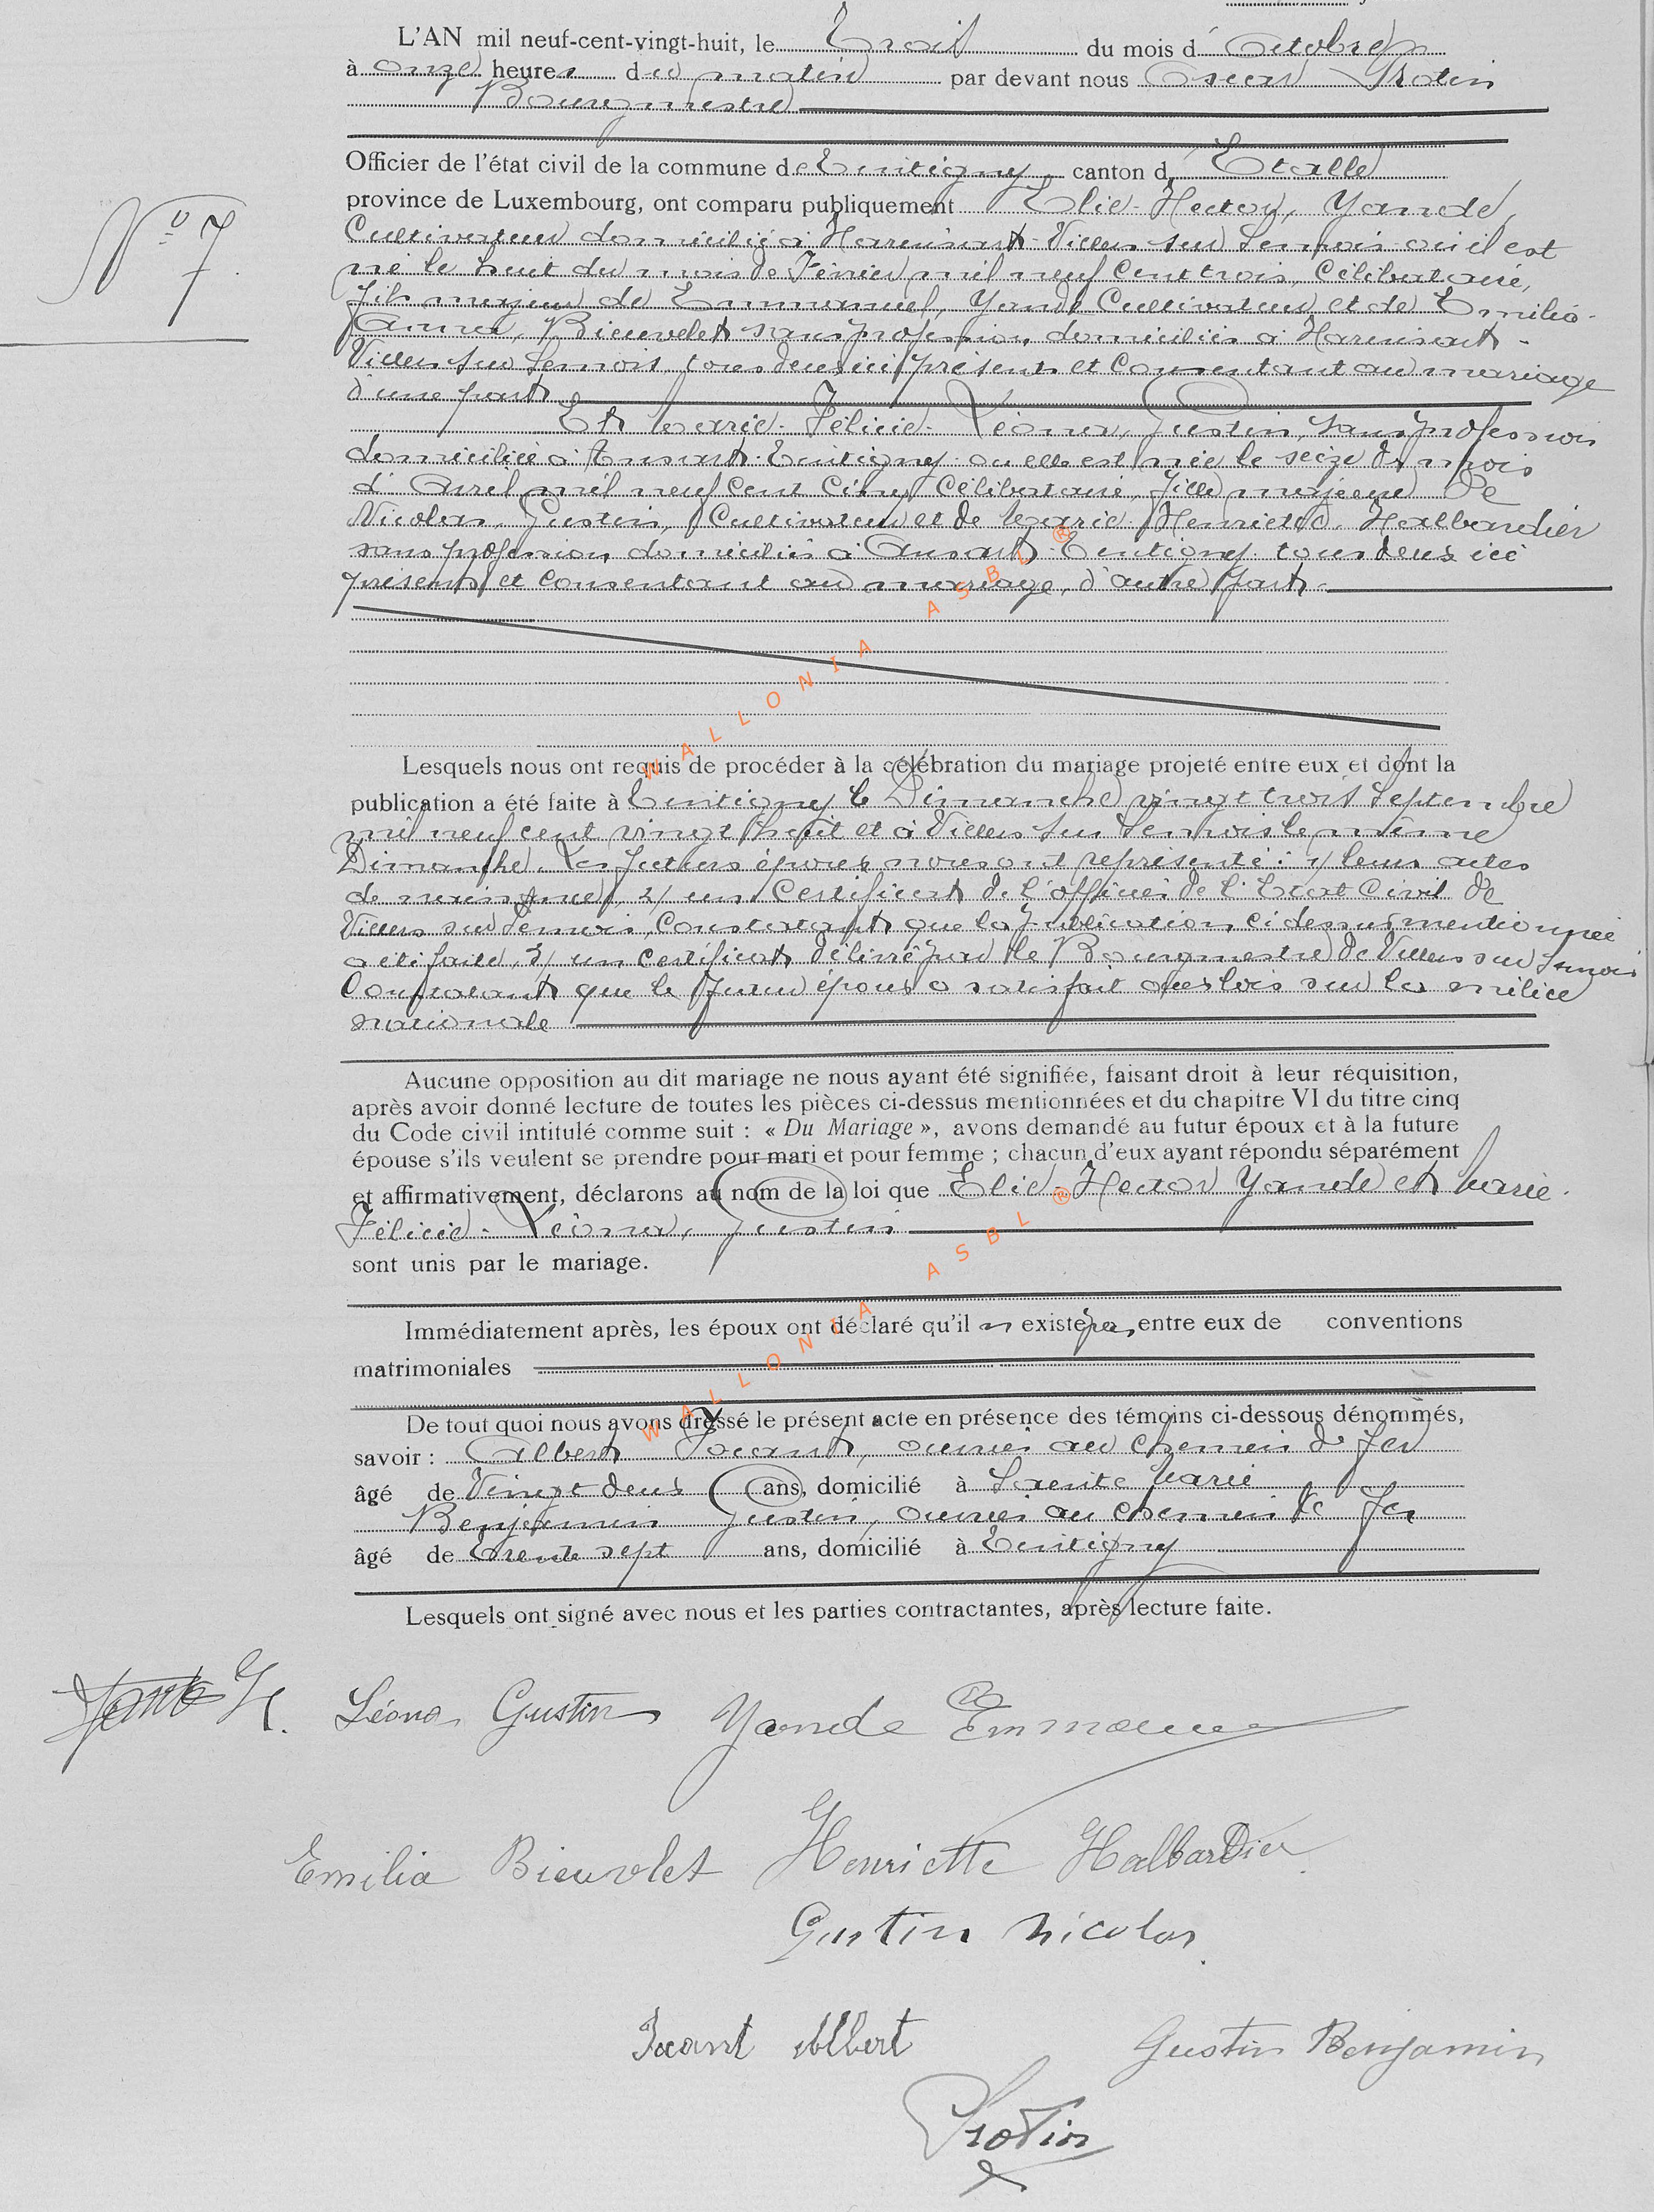 L'AN mil neuf-cent-vingt-huit, le Trois du mois d' Octobre
à onze heures du matin par devant nous Oscar Protin
Bourgmestre
Officier de l'état civil de la commune de Tintigny canton d' Etalle
province de Luxembourg, ont comparu publiquement Elie-Hector, Yande,
N° 7
Cultivateur domicilié à Harinsart-Villers sur Semois où il est
né le huit du mois de Février mil neuf cent trois, célibataire,
fils majeur de Emmanuel, Yande Cultivateur et de Emilia-
Anna, Bieuvelet sans profession domiciliés à Harinsart-
Villers sur Semois tous deux ici présents et consentant au mariage
d'une part
Et Marie-Félicie-Léona, Gustin, sans profession
domiciliée à Ansart-Tintigny où elle est née le seize du mois
d'Avril mil neuf cent cinq célibataire, fille majeure de
Nicolas, Gustin, Cultivateur et de Marie-Henriette, Halbardier
sans profession domiciliés à Ansart-Tintigny tous deux ici
présents et consentant au mariage, d'autre part
Lesquels nous ont requis de procéder à la célébration du mariage projeté entre eux et dont la
publication a été faite à Tintigny le Dimanche vingt trois Septembre
mil neuf cent vingt huit et à Villers sur Semois le même
Dimanche. Les futurs époux nous ont représenté: 1/ leurs actes
de naissance, 2/ un certificat de l'officier de l'Etat Civil de
Villers sur Semois, constatant que la publication ci dessus mentionnée
a été faite, 3/ un certificat délivré par le Bourgmestre de Villers sur Semois
Constatant que le futur époux a satisfait aux lois sur la milice
nationale
Aucune opposition au dit mariage ne nous ayant été signifiée, faisant droit à leur réquisition,
après avoir donné lecture de toutes les pièces ci-dessus mentionnées et du chapitre VI du titre cinq
du Code civil intitulé comme suit : « Du Mariage », avons demandé au futur époux et à la future
épouse s'ils veulent se prendre pour mari et pour femme ; chacun d'eux ayant répondu séparément
et affirmativement, déclarons au nom de la loi que Elie-Hector Yande et Marie-
Félicie-Léona, Gustin
sont unis par le mariage.
Immédiatement après, les époux ont déclaré qu'il n existe pas entre eux de conventions
matrimoniales
De tout quoi nous avons dressé le présent acte en présence des témoins ci-dessous dénommés,
savoir : Albert Jacant, ouvrier au chemin de fer
âgé de Vingt deux ans, domicilié à Sainte Marie
Benjamin Gustin, ouvrier au chemin de fer
âgé de Trente sept ans, domicilié à Tintigny
Lesquels ont signé avec nous et les parties contractantes, après lecture faite.
Yande H. Léona Gustin Yande Emmanuel
Emilia Bieuvlet Henriette Halbardier
Gustin Nicolas
Albert Gustin Benjamin
Protin
WALLONIA ASBL ®
WALLONIA ASBL ®